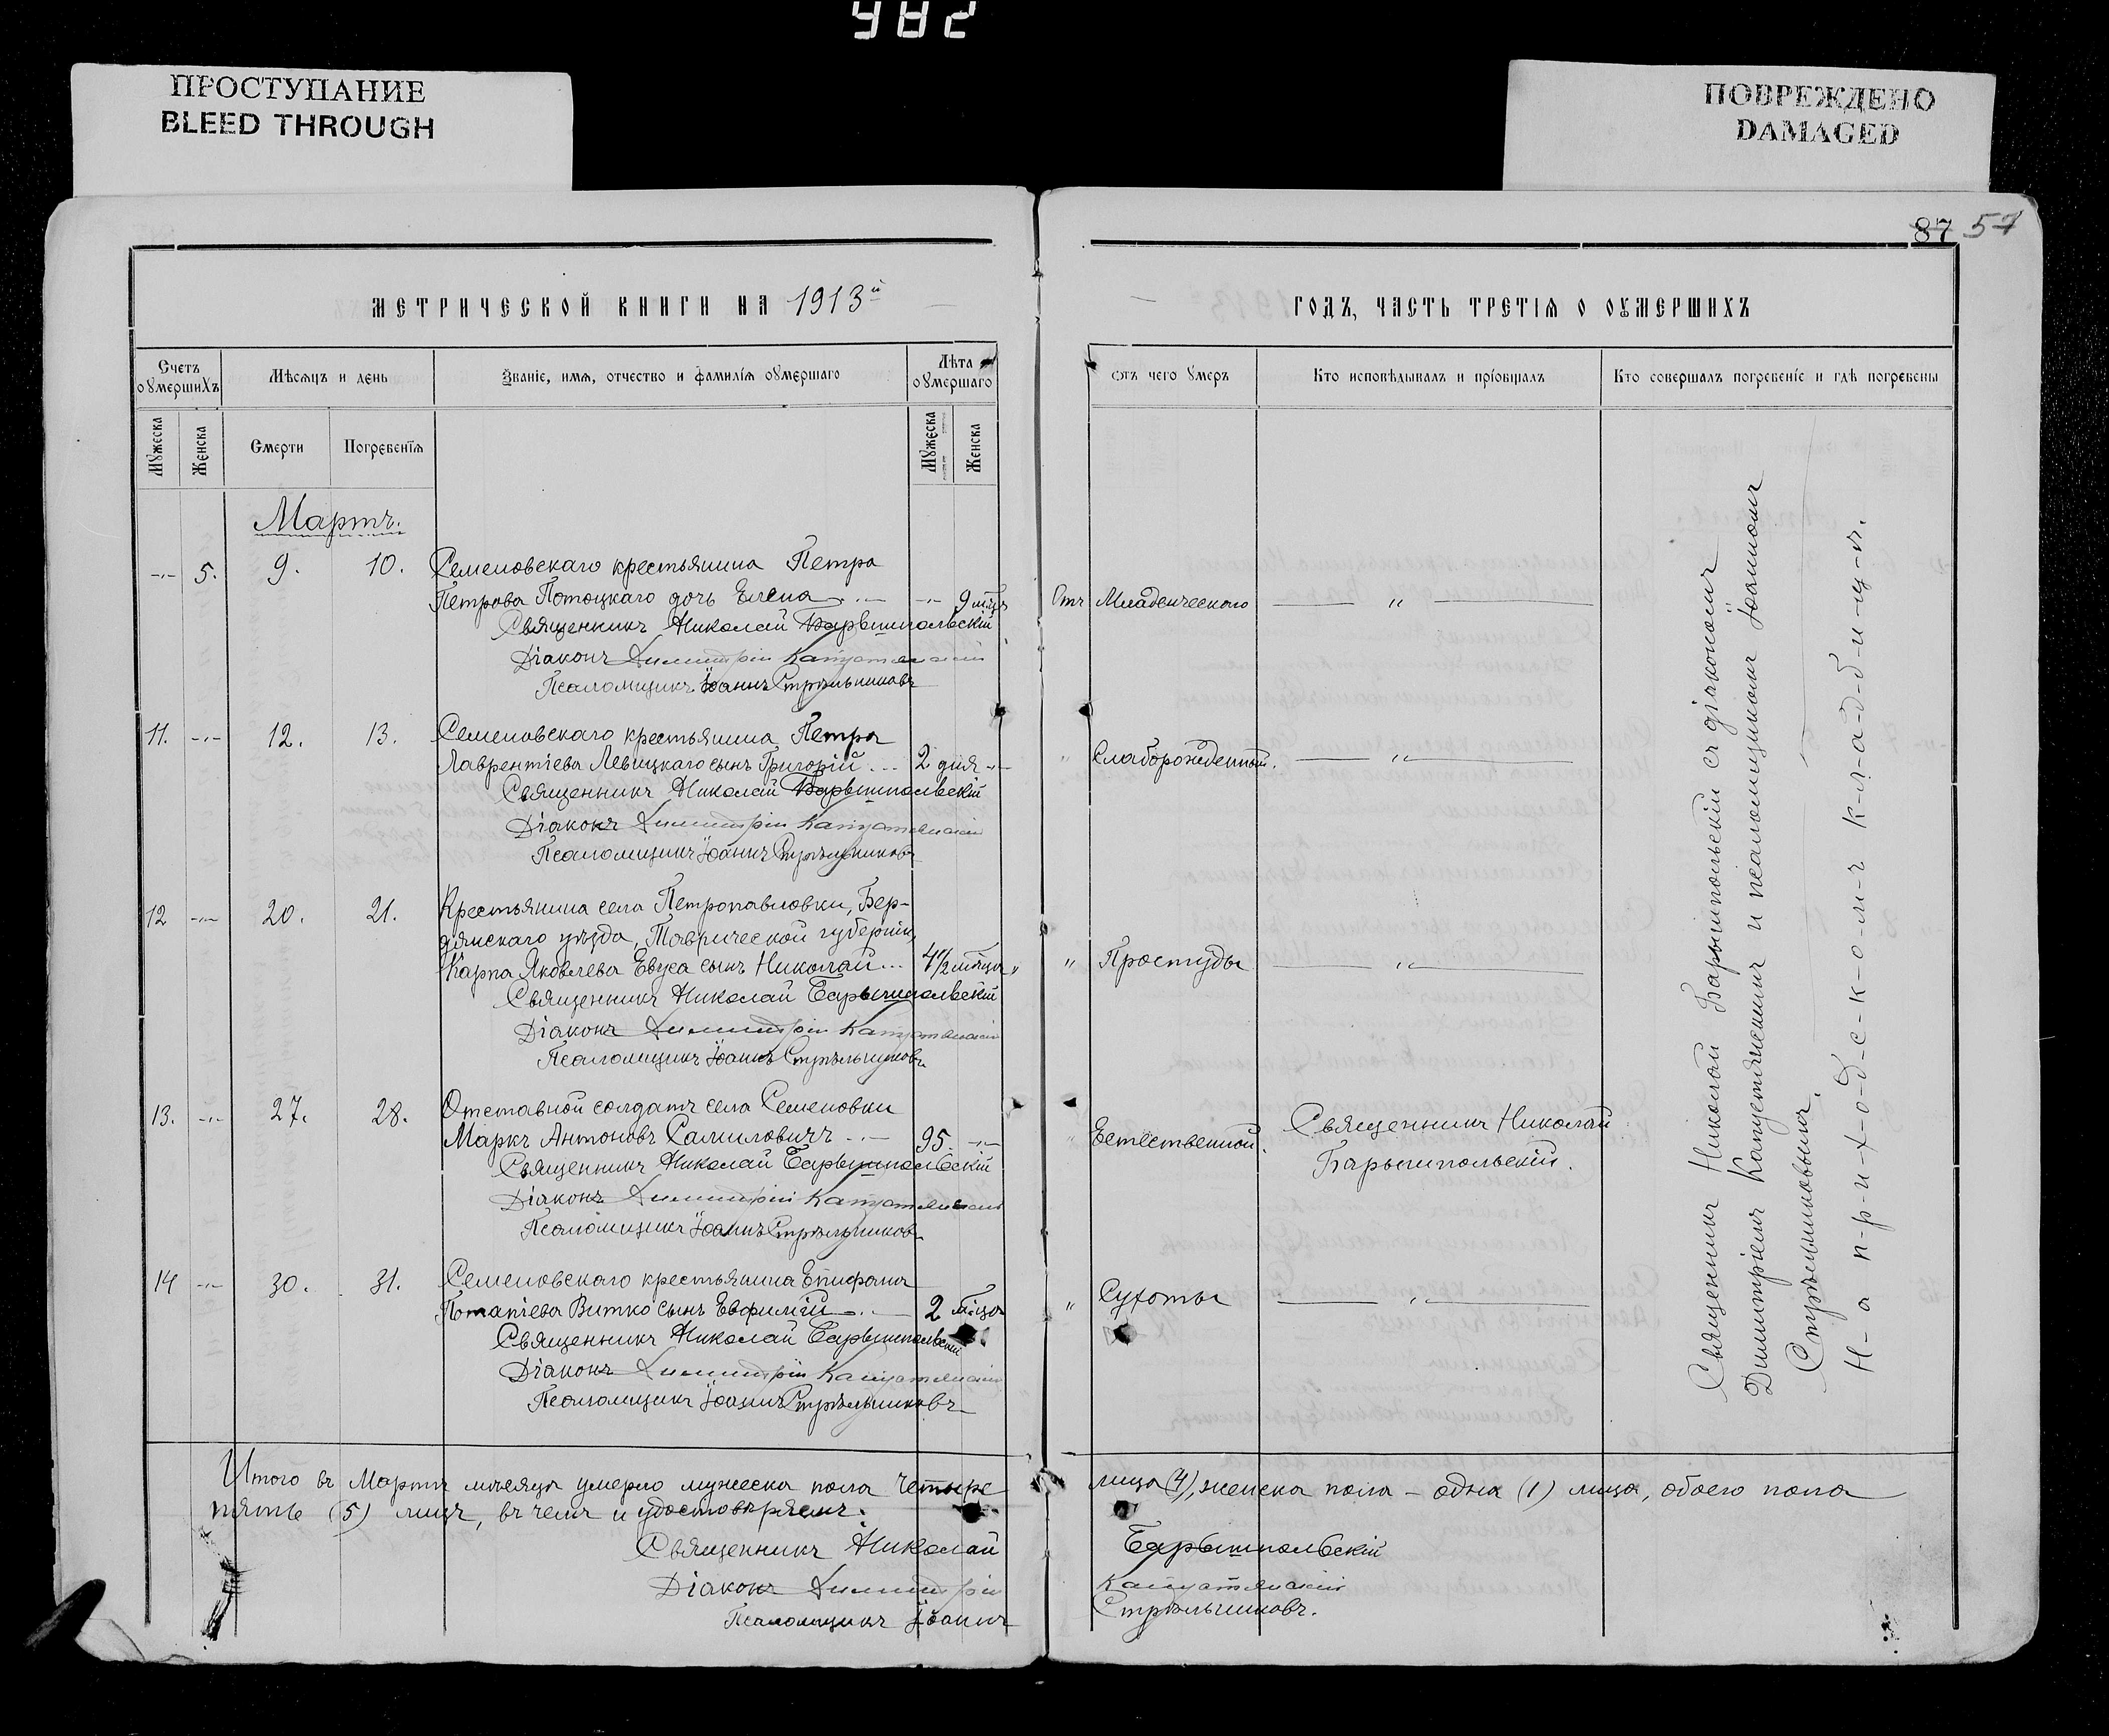 982
ПРОСТУПАНИЕ
BLEED THROUGH
ПОВРЕЖДЕНО
DAMAGED
87 57
МЕТРИЧЕСКОЙ КНИГИ НА 1913й
ГОДЪ, ЧАСТЬ ТРЕТІЯ О ОУМЕРШИХЪ
Счетъ оумершихъ
Мѣсяцъ и день
Званіе, имя, отчество и фамилія оумершаго
Лѣта оумершаго
Отъ чего умеръ
Кто исповѣдывалъ и пріобщалъ
Кто совершалъ погребеніе и гдѣ погребены
Мужеска
Женска
Смерти
Погребенія
Мужеска
Женска
Мартъ.
-"- 5. 9. 10. Семеновскаго крестьянина Петра
Петрова Потоцкаго дочь Елена -"- 9 мцъ Отъ Младенческаго "
Священникъ Николай Барышпольскій
Діаконъ Димитрій
Псаломщикъ Іоаннъ Стрѣльниковъ
11. -"- 12. 13. Семеновскаго крестьянина Петра
Лаврентіева Левицкаго сынъ Григорій 2 дня -"- " Слаборожденный. "
Священникъ Николай Барышпольскій
Діаконъ Димитрій
Псаломщикъ Іоаннъ Стрѣльниковъ
12 -"- 20. 21. Крестьянина села Петропавловки, Бер-
дянскаго уѣзда, Таврической губерніи,
Карпа Яковлева Евуса сынъ Николай 4½ мѣсяца " " Простуды "
Священникъ Николай Барышпольскій
Діаконъ Димитрій
Псаломщикъ Іоаннъ Стрѣльниковъ
13. -"- 27. 28. Отставной солдатъ села Семеновки
Маркъ Антоновъ Самиловичъ 95. -"- " Естественной. Священникъ Николай
Барышпольскій.
Священникъ Николай Барышпольскій
Діаконъ Димитрій
Псаломщикъ Іоаннъ Стрѣльниковъ
14 -"- 30. 31. Семеновскаго крестьянина Епифана
Потапіева Витко сынъ Евфимій 2 мѣсца " Сухоты "
Священникъ Николай Барышпольскій
Діаконъ Димитрій
Псаломщикъ Іоаннъ Стрѣльниковъ
Священникъ Николай Барышпольскій съ діакономъ
Димитріемъ и псаломщикомъ Іоанномъ
Стрѣльниковымъ.
Н-а п-р-и-х-о-д-с-к-о-м-ъ к-л-а-д-б-и-щ-ѣ.
Итого въ Мартѣ мѣсяцѣ умерло мужеска пола четыре лица (4), женска пола – одна (1) лица, обоего пола
пять (5) лицъ, въ чемъ и удостовѣряемъ:
Священникъ Николай Барышпольскій
Діаконъ Димитрій
Псаломщикъ Іоаннъ Стрѣльниковъ.